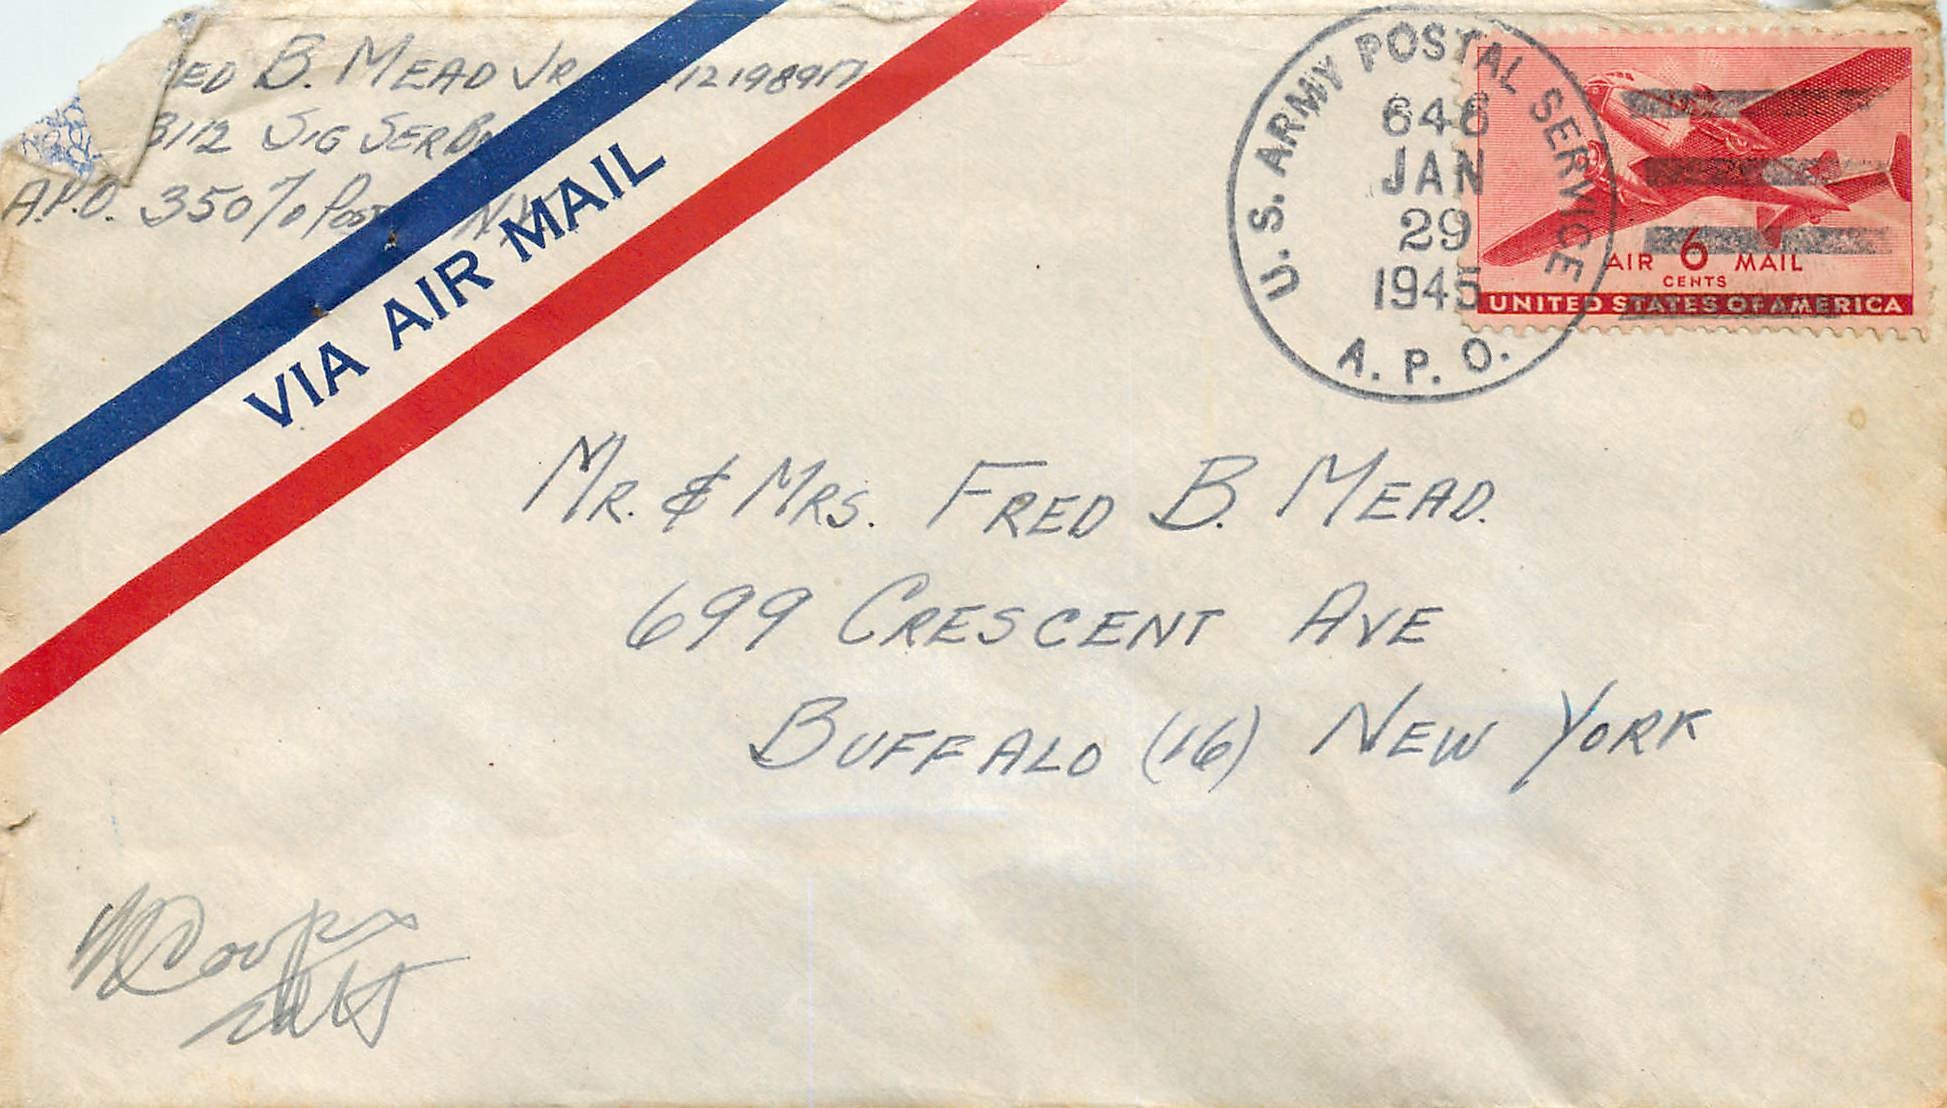 ED B. MEAD JR 12198917
3112 SIG SER BN
A.P.O. 350 % POST N.Y.
VIA AIR MAIL
U.S. ARMY POSTAL SERVICE
646
JAN
29
1945
A. P. O.
AIR 6 MAIL
CENTS
UNITED STATES OF AMERICA
MR. & MRS. FRED B. MEAD.
699 CRESCENT AVE
BUFFALO (16) NEW YORK